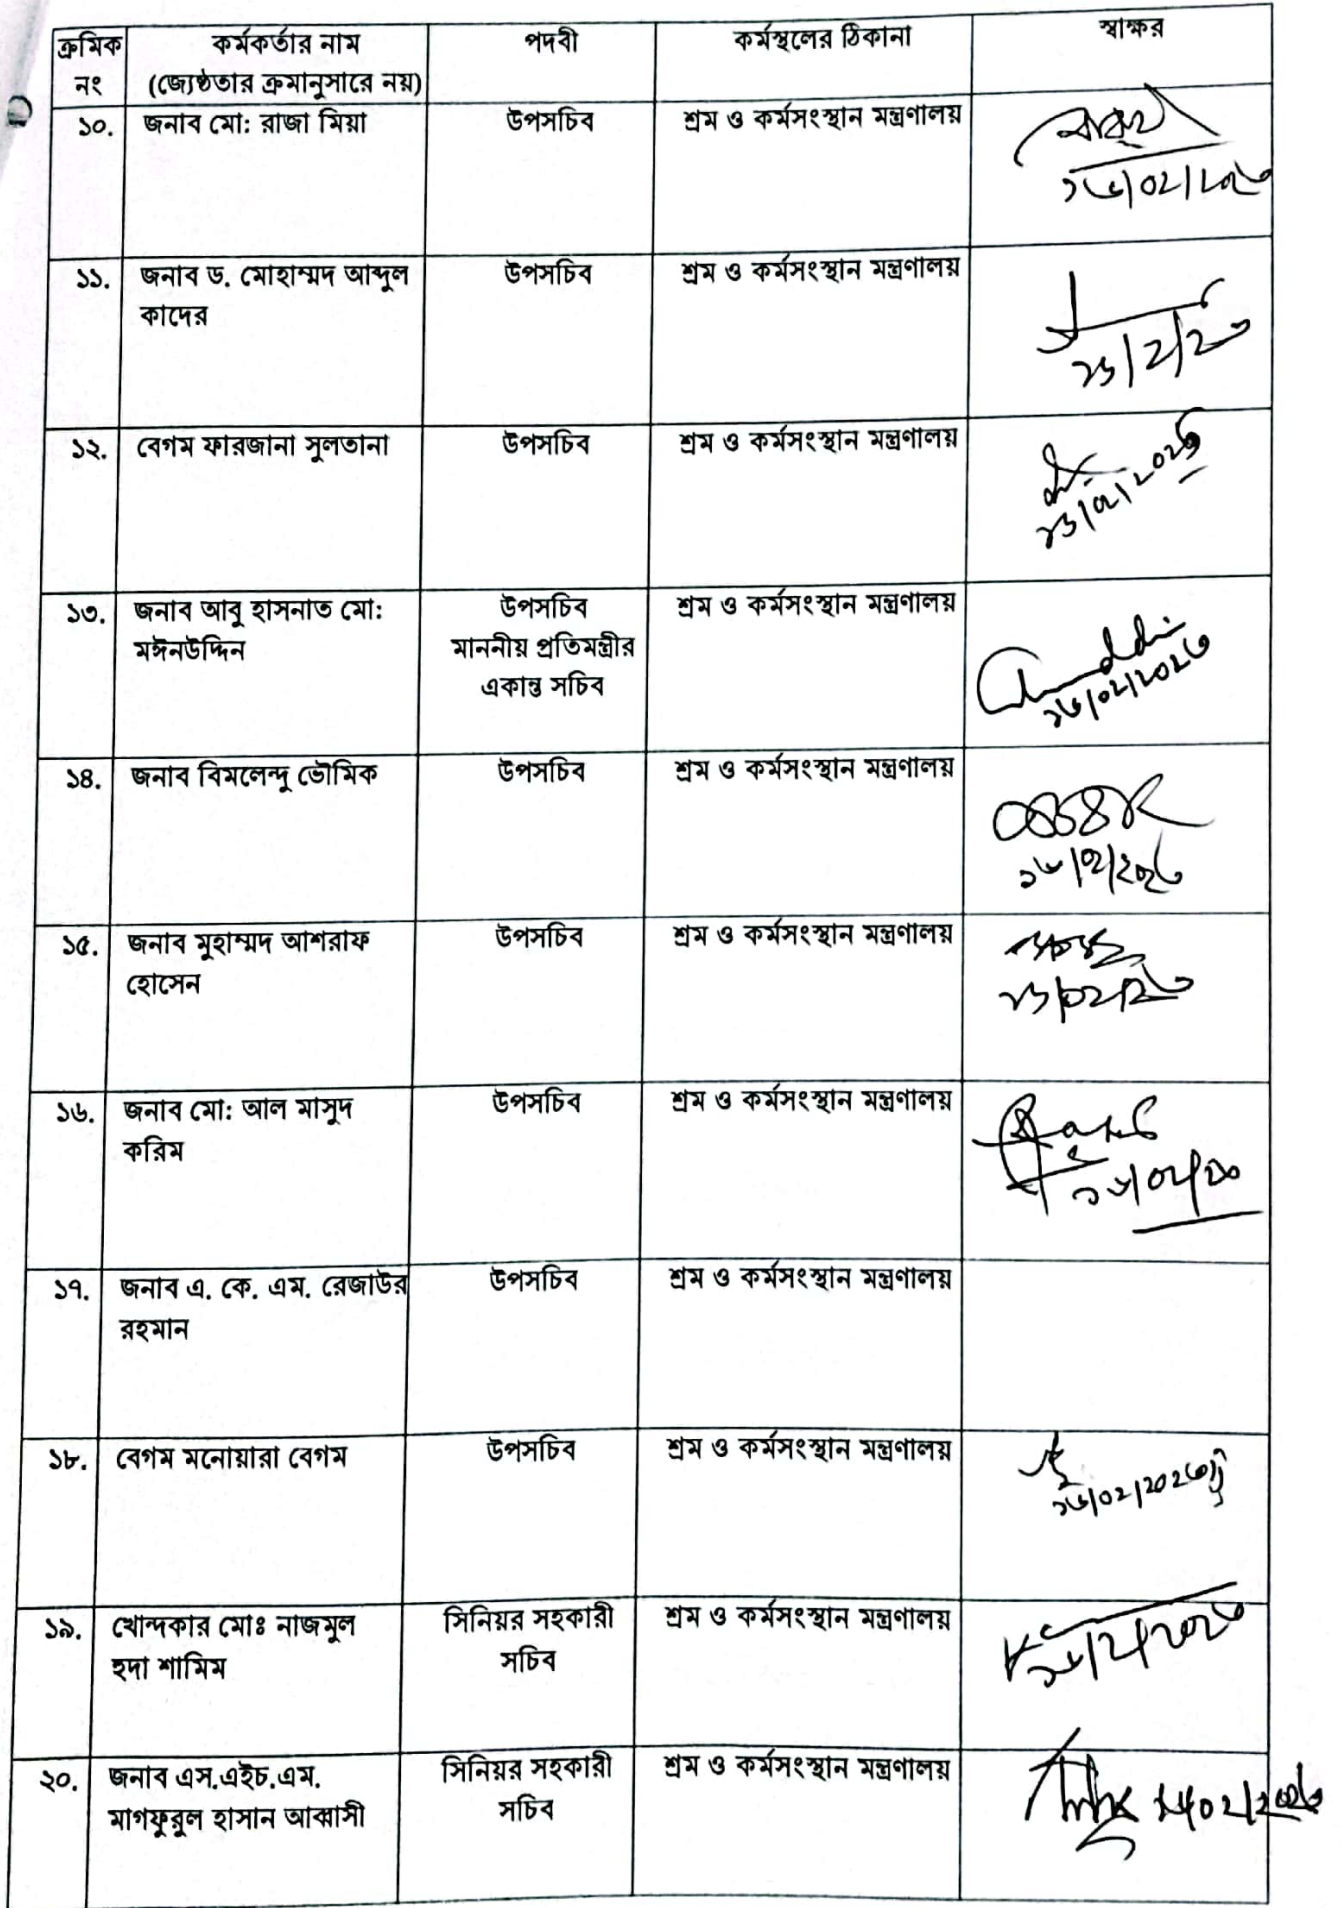 ক্রমিক নং | কর্মকর্তার নাম (জ্যেষ্ঠতার ক্রমানুসারে নয়) | পদবী | কর্মস্থলের ঠিকানা | স্বাক্ষর
১০. | জনাব মো: রাজা মিয়া | উপসচিব | শ্রম ও কর্মসংস্থান মন্ত্রণালয়
১১. | জনাব ড. মোহাম্মদ আব্দুল কাদের | উপসচিব | শ্রম ও কর্মসংস্থান মন্ত্রণালয়
১২. | বেগম ফারজানা সুলতানা | উপসচিব | শ্রম ও কর্মসংস্থান মন্ত্রণালয়
১৩. | জনাব আবু হাসনাত মো: মঈনউদ্দিন | উপসচিব মাননীয় প্রতিমন্ত্রীর একান্ত সচিব | শ্রম ও কর্মসংস্থান মন্ত্রণালয়
১৪. | জনাব বিমলেন্দু ভৌমিক | উপসচিব | শ্রম ও কর্মসংস্থান মন্ত্রণালয়
১৫. | জনাব মুহাম্মদ আশরাফ হোসেন | উপসচিব | শ্রম ও কর্মসংস্থান মন্ত্রণালয়
১৬. | জনাব মো: আল মাসুদ করিম | উপসচিব | শ্রম ও কর্মসংস্থান মন্ত্রণালয়
১৭. | জনাব এ. কে. এম. রেজাউর রহমান | উপসচিব | শ্রম ও কর্মসংস্থান মন্ত্রণালয়
১৮. | বেগম মনোয়ারা বেগম | উপসচিব | শ্রম ও কর্মসংস্থান মন্ত্রণালয়
১৯. | খোন্দকার মোঃ নাজমুল হুদা শামিম | সিনিয়র সহকারী সচিব | শ্রম ও কর্মসংস্থান মন্ত্রণালয়
২০. | জনাব এস.এইচ.এম. মাগফুরুল হাসান আব্বাসী | সিনিয়র সহকারী সচিব | শ্রম ও কর্মসংস্থান মন্ত্রণালয়